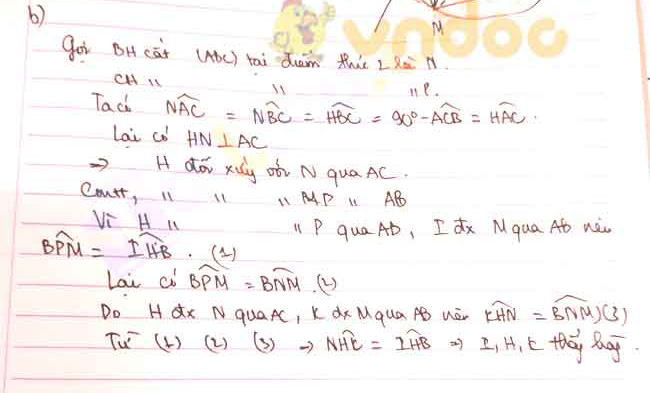 M
vndoc
b)
Gọi BH cắt (ABC) tại điểm thứ 2 là N.
CH " " " P.
Ta có NAC = NBC = HBC = 90° - ACB = HAC.
Lại có HN ⊥ AC
⇒ H đối xứng với N qua AC.
Cmtt, " " " P " AB
Vì H " " P qua AB, I đx M qua AB nên
BPM = IHB. (1)
Lại có BPM = BNM. (2)
Do H đx N qua AC, K đx M qua AB nên KHN = BNM (3)
Từ (1) (2) (3) → NHK = IHB ⇒ I, H, K thẳng hàng.